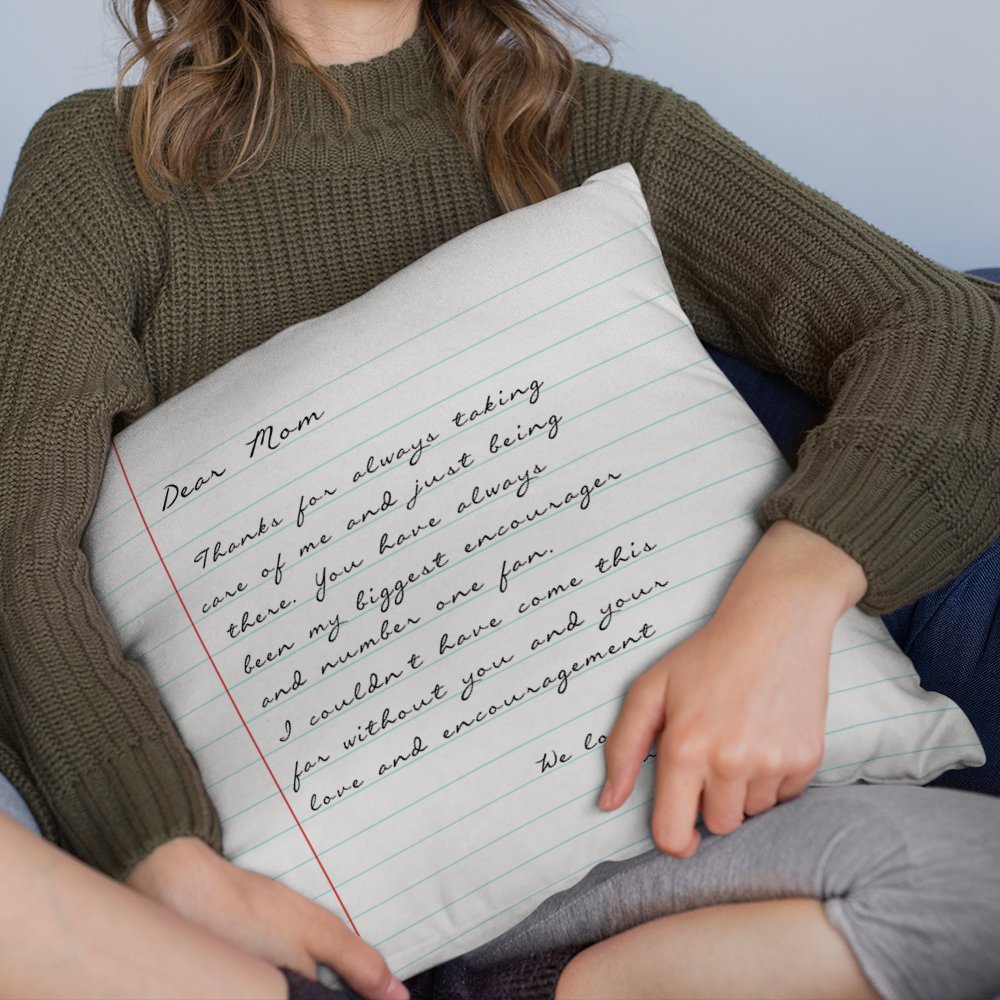 Dear Mom
Thanks for always taking
care of me and just being
there. You have always
been my biggest encourager
and number one fan.
I couldn't have come this
far without you and your
love and encouragement
We